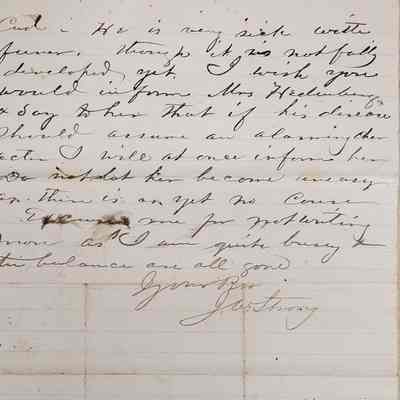 and i He is very sick with
fever, though it is not fully
developed, yet. I wish you
would inform Mrs Hedenberg
& Say to her that if his disease
should assume an alarming char
acter I will at once inform her
Do not let her become uneasy
as there is as yet no cause
Excuse me for not writing
more as I am quite busy &
the balance are all gone
Your Bro
J W Strong